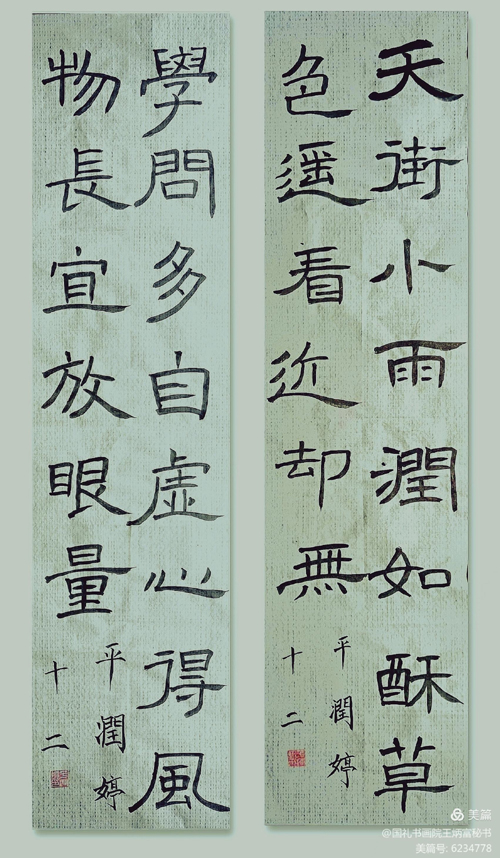 天街小雨潤如酥草
色遥看近却無
平潤婷
十二
學問多自虛心得風
物長宜放眼量
平潤婷
十二
美篇
@国礼书画院王炳富秘书
美篇号: 6234778